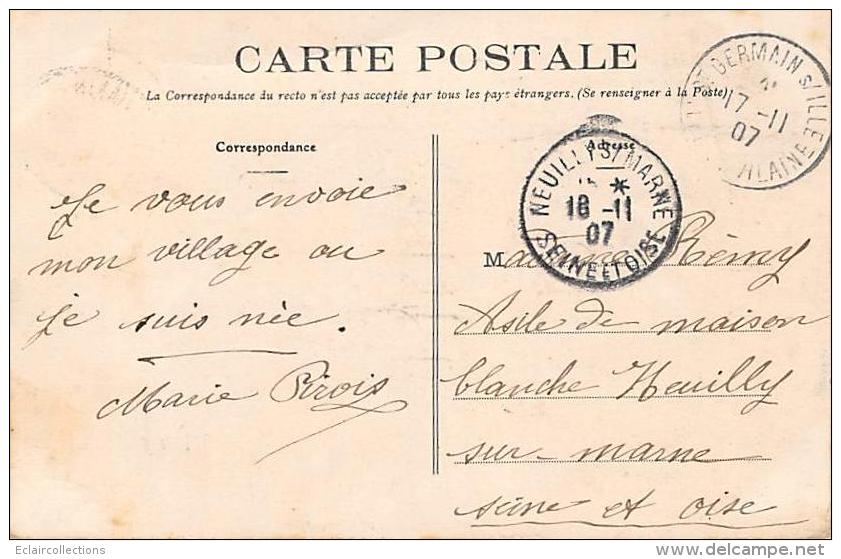 CARTE POSTALE
La Correspondance du recto n'est pas acceptée par tous les pays étrangers. (Se renseigner à la Poste)
Correspondance
Je vous envoie
mon village ou
je suis née.
Marie Pirois
Adresse
Madame Rémy
Asile de maison
blanche Neuilly
sur-marne
seine et oise
NEUILLY S/ MARNE
18 -11
07
SEINE ET OISE
GERMAIN S/ ILLE
17 -11
07
VILAINE
Eclaircollections
www.delcampe.net